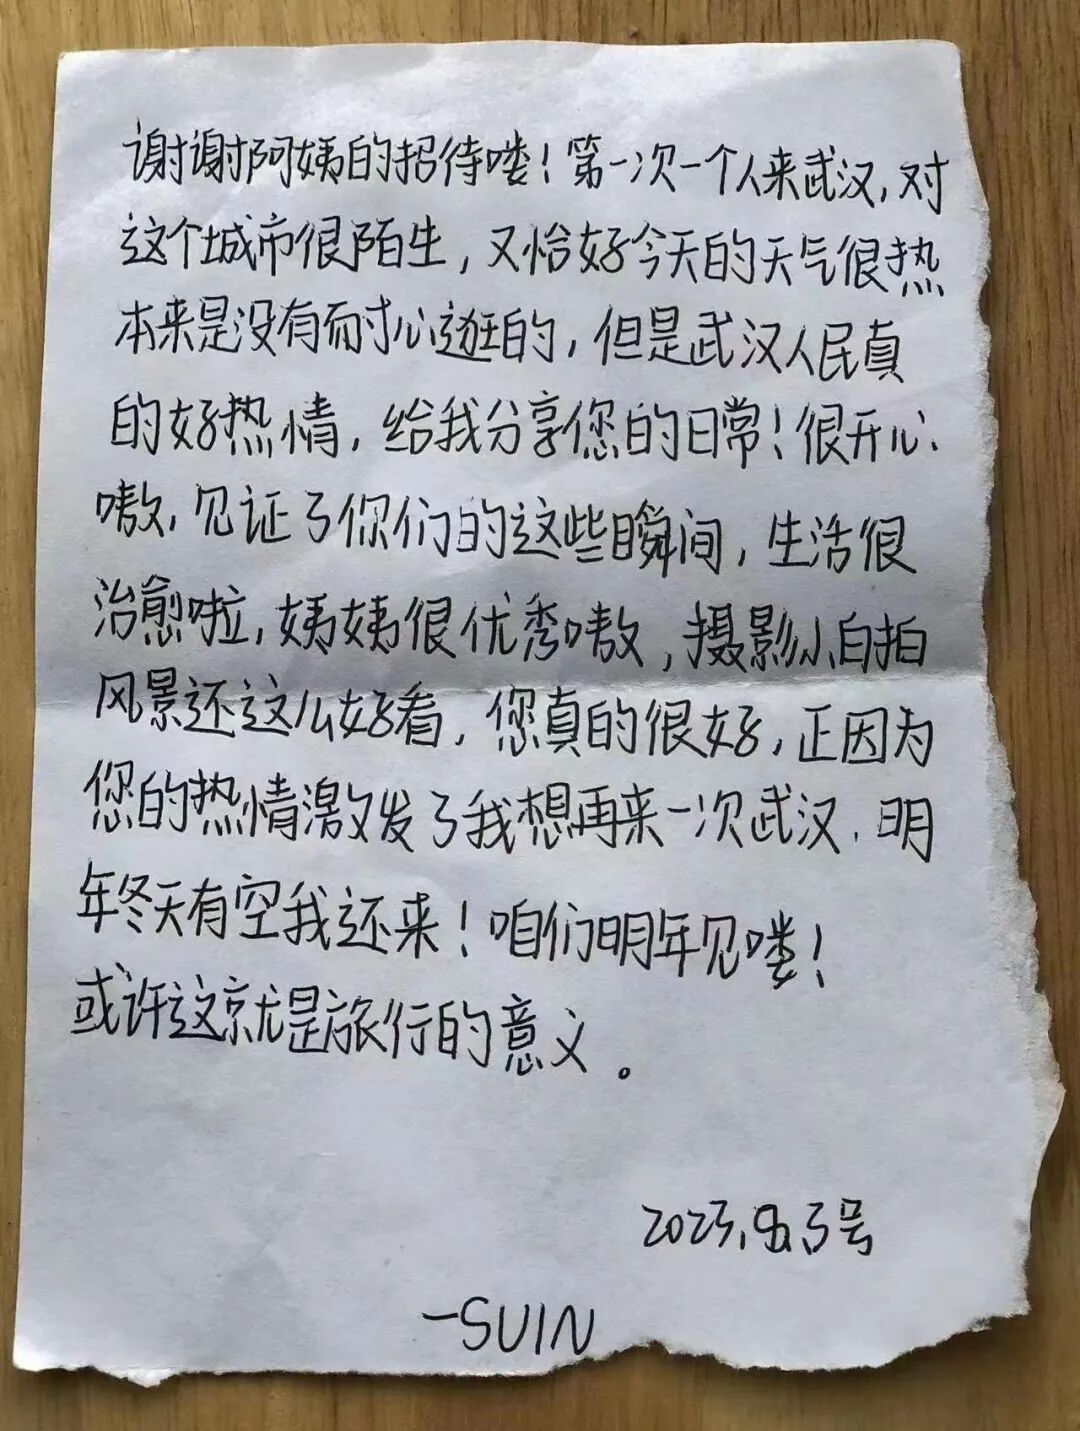 谢谢阿姨的招待喽！第一次一个人来武汉，对
这个城市很陌生，又恰好今天的天气很热
本来是没有耐心逛的，但是武汉人民真
的好热情，给我分享您的日常！很开心
嗷，见证了你们的这些瞬间，生活很
治愈啦，姨姨很优秀嗷，摄影小白拍
风景还这么好看，您真的很好，正因为
您的热情激发了我想再来一次武汉，明
年冬天有空我还来！咱们明年见喽！
或许这就是旅行的意义。
2023.8.3号
—SUIN